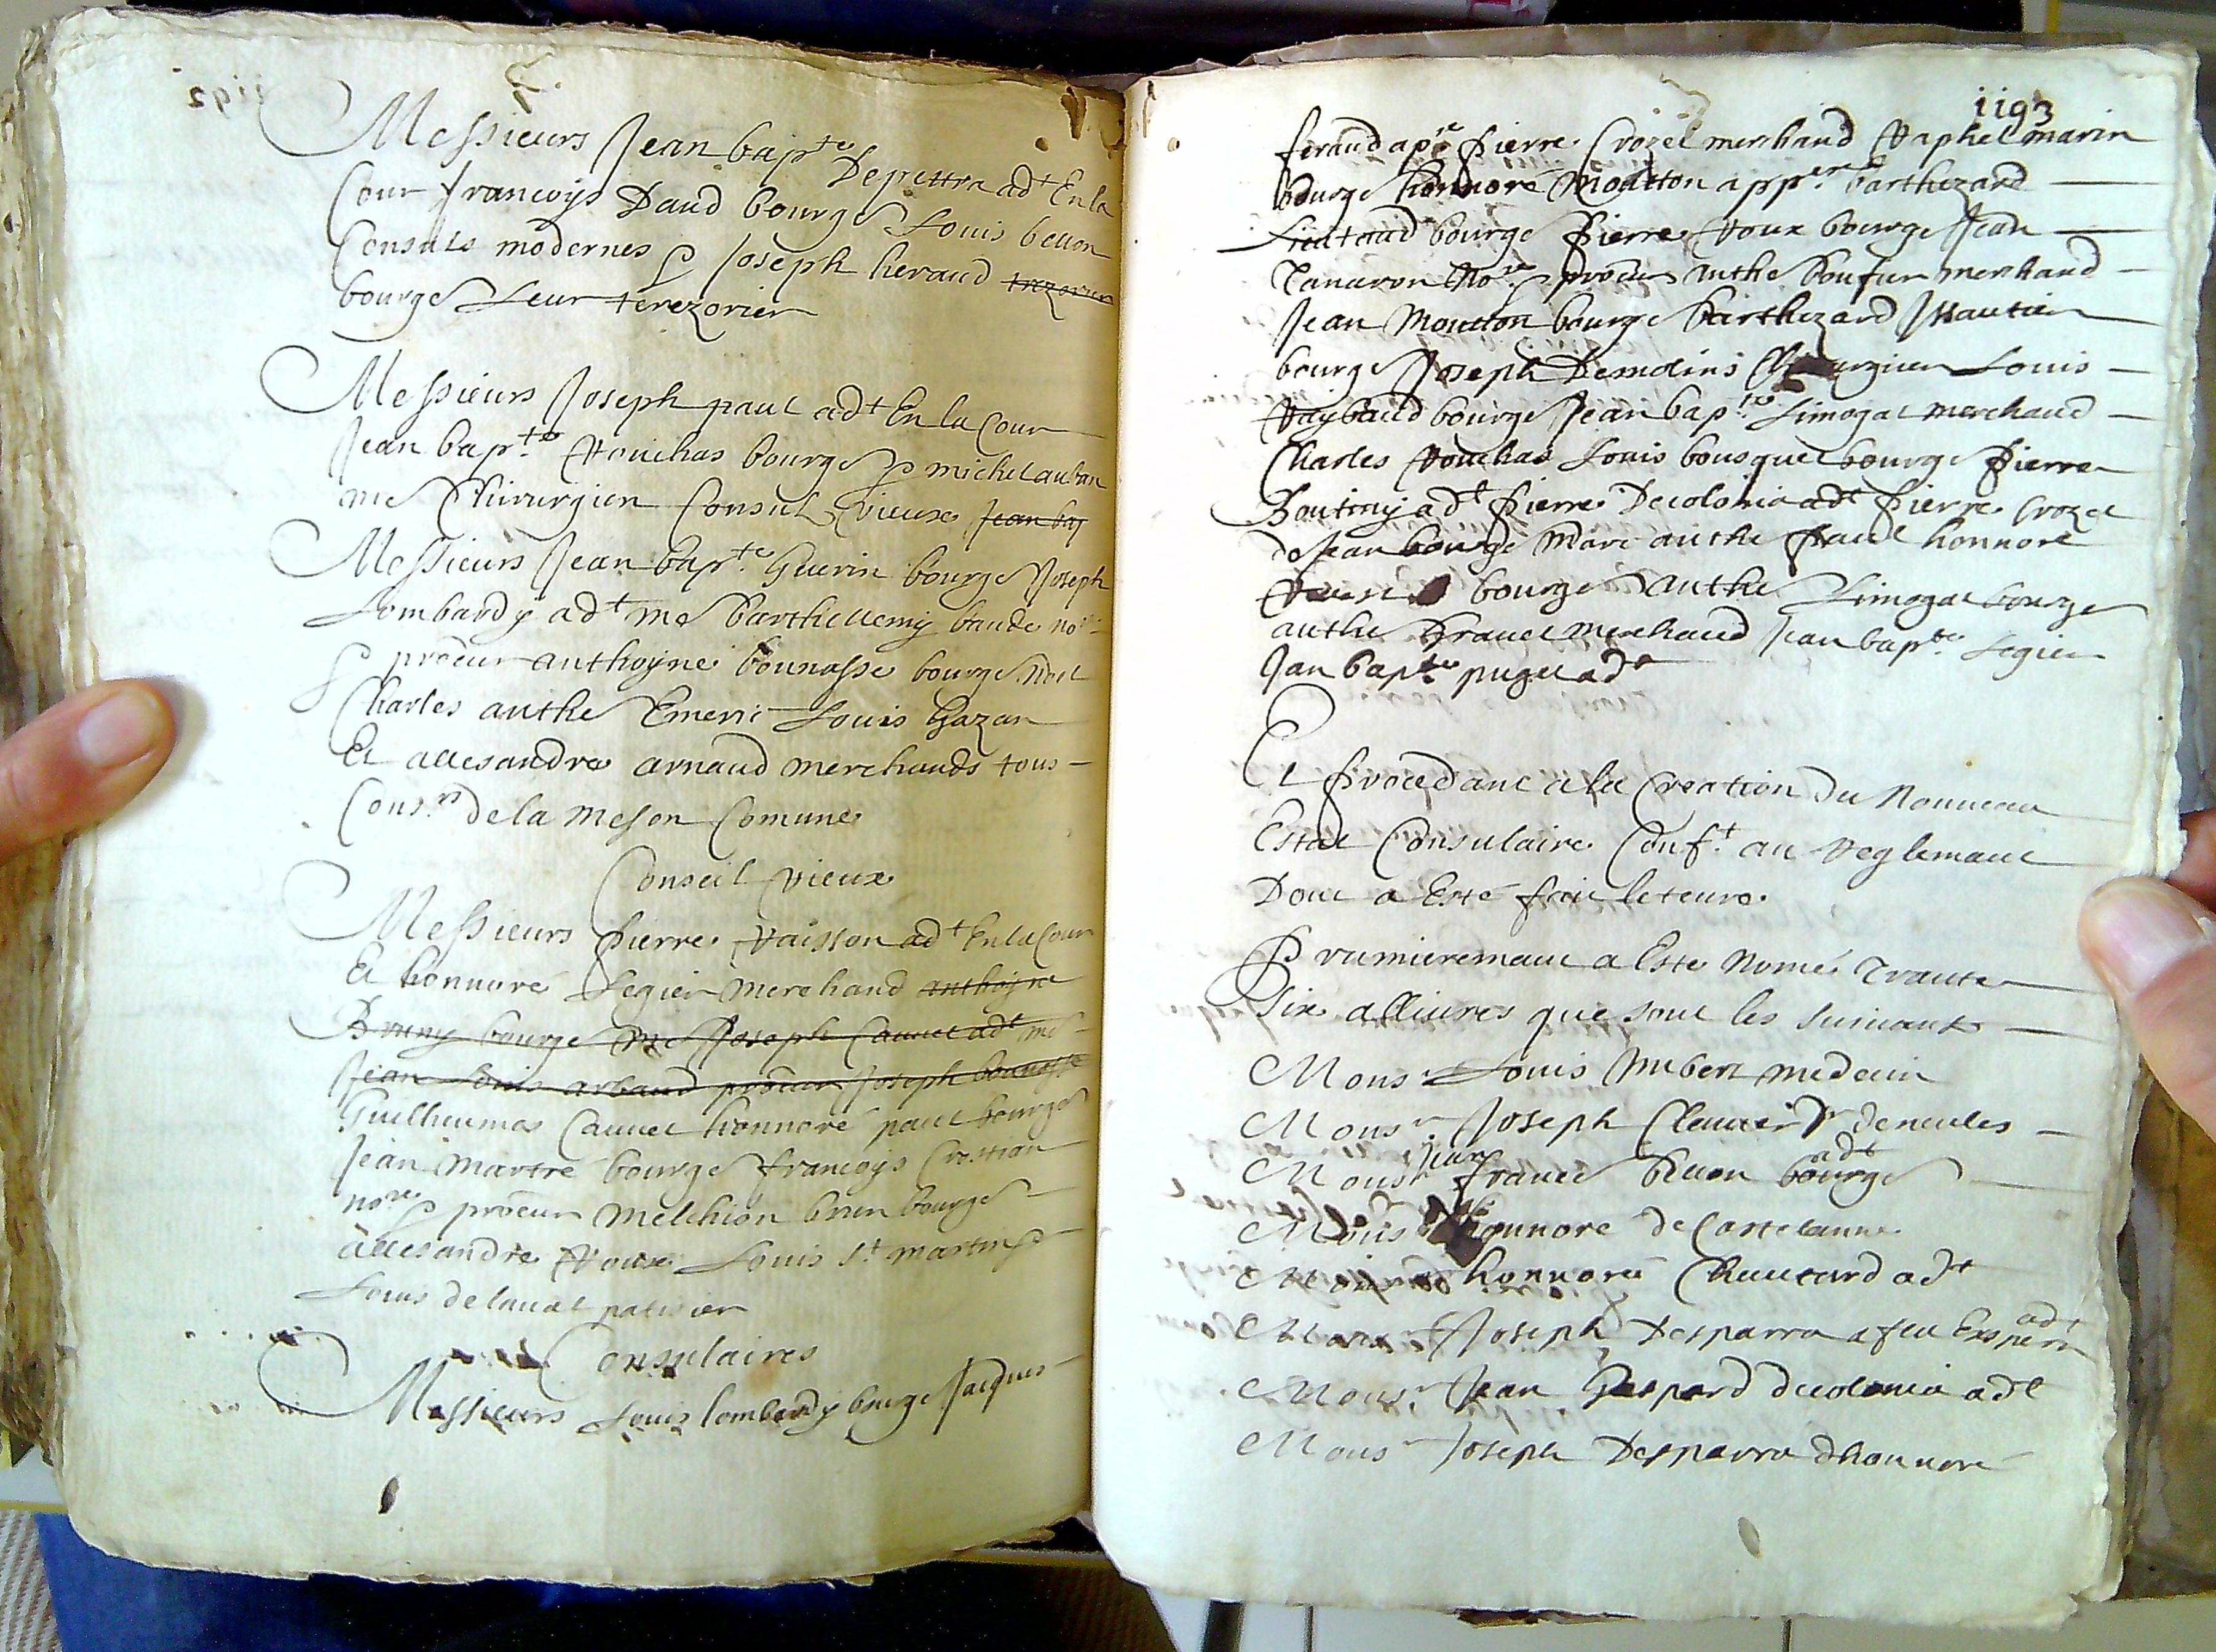 Messieurs Jean bapte Depettra adt En la
Cour francoys Daud bourgs Louis bellon
Consuls modernes & Joseph heraud trezorier
bourgs Leur terezorier
Messieurs Joseph paul adt En la Cour
Jean bapte Rouchas bourgs & michel auban
me Chirurgien Consul vieux Jean bap
Messieurs Jean bapte Guerin bourgs Joseph
Lombard y adt me barthellemy baude nore
& procur anthoyne bounasse bourgs
Charles anthe Emeric Louis Gazan
Et allesandre arnaud merchands tous
Consrs de la meson Comune
Conseil vieux
Messieurs pierre Raisson adt En la Cour
Et honnore Legier merchand anthoyne
Bruny bourgs me Joseph Cauvet adt me
Jean Louis arbaud procur Joseph bounasse
Guilheumes Cauvet honnoré paul bourgs
Jean martre bourgs francoys Crestian
nore & procur melchion brun bourgs
allesandre Roux Louis st martin &
Louis de laval patisier
Consulaires
Messieurs Louis lombard y bourgs Jacques
1193
feraud apre pierre Crozet merchand Raphel marin
bourgs honnoré moutton appre barthezard
Lieutaud bourgs pierre Roux bourgs Jean
Tanaron nore & procur anthe boufier merchand
Jean moutton bourgs barthezard Issautier
bourgs Joseph Demolins Louis
Raybaud bourgs Jean bapte Limogat merchand
Charles Rouchas Louis bousquet bourgs pierre
Boutiny adt pierre Decolonia adt pierre Crozet
de Jean bourgs marc anthe paul honnoré
bourgs anthe Limogat bourgs
anthe Gravet merchand Jean bapte Legier
Jan bapte puget adt
Et procedant a la Creation du Nouveau
Estat Consulaire Conft au Reglemant
Dont a Esté fait leteure
Prumieremant a Este Nomé Trante
Six alliures que sont les suivants
Monsr Louis Imbert medecin
Monsr Joseph Clavier sr deneules
Monsr Jean france bellon bourgs adt
Monsr honnore de Castelanne
Monsr honnoré Chautard adt
Monsr Joseph Desparra a feu Exsperit adt
Monsr Jean Gaspard decolonia adt
Monsr Joseph Desparra dhonnoré